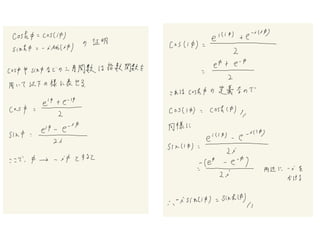 coshφ = cos(iφ)
sinhφ = -i sin(iφ) の証明
cosφや sinφなどの三角関数は指数関数を
用いて以下の様に表せる
cosφ = (e^{iφ} + e^{-iφ}) / 2
sinφ = (e^{iφ} - e^{-iφ}) / 2i
ここで、φ → iφ とすると
cos(iφ) = (e^{i(iφ)} + e^{-i(iφ)}) / 2
= (e^{φ} + e^{-φ}) / 2
これは coshφ の定義なので
cos(iφ) = cosh(φ) //
同様に
sin(iφ) = (e^{i(iφ)} - e^{-i(iφ)}) / 2i
= -(e^{φ} - e^{-φ}) / 2i 両辺に -i を
かける
∴ -i sin(iφ) = sinh(φ) //